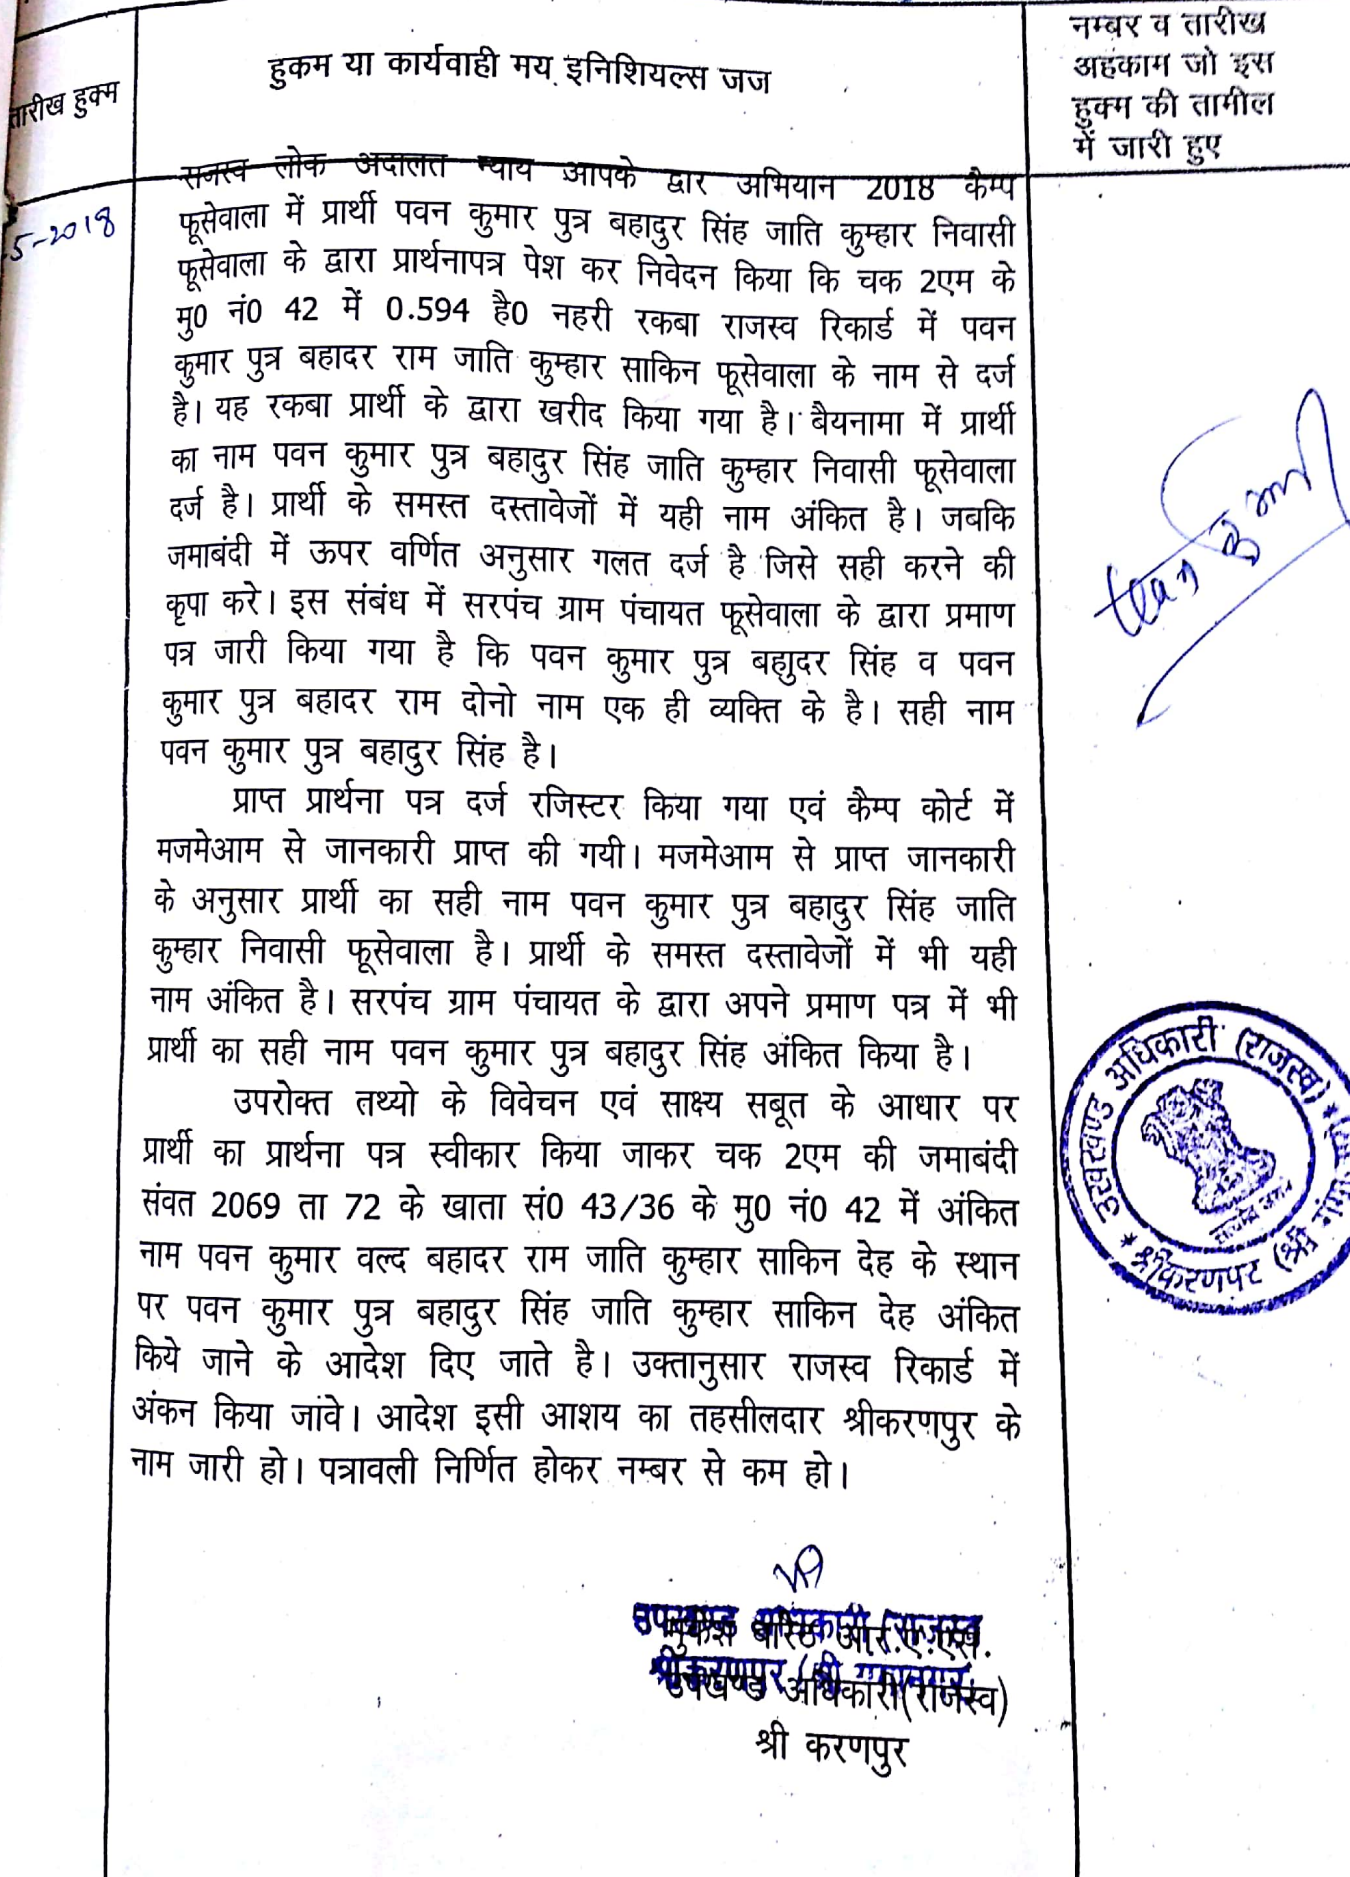 तारीख हुक्म
हुकम या कार्यवाही मय इनिशियल्स जज
नम्बर व तारीख
अहकाम जो इस
हुक्म की तामील
में जारी हुए
5-2018
राजस्व लोक अदालत न्याय आपके द्वार अभियान 2018 कैम्प
फूसेवाला में प्रार्थी पवन कुमार पुत्र बहादुर सिंह जाति कुम्हार निवासी
फूसेवाला के द्वारा प्रार्थनापत्र पेश कर निवेदन किया कि चक 2एम के
मु0 नं0 42 में 0.594 है0 नहरी रकबा राजस्व रिकार्ड में पवन
कुमार पुत्र बहादर राम जाति कुम्हार साकिन फूसेवाला के नाम से दर्ज
है। यह रकबा प्रार्थी के द्वारा खरीद किया गया है। बैयनामा में प्रार्थी
का नाम पवन कुमार पुत्र बहादुर सिंह जाति कुम्हार निवासी फूसेवाला
दर्ज है। प्रार्थी के समस्त दस्तावेजों में यही नाम अंकित है। जबकि
जमाबंदी में ऊपर वर्णित अनुसार गलत दर्ज है जिसे सही करने की
कृपा करे। इस संबंध में सरपंच ग्राम पंचायत फूसेवाला के द्वारा प्रमाण
पत्र जारी किया गया है कि पवन कुमार पुत्र बहाुदर सिंह व पवन
कुमार पुत्र बहादर राम दोनो नाम एक ही व्यक्ति के है। सही नाम
पवन कुमार पुत्र बहादुर सिंह है।
प्राप्त प्रार्थना पत्र दर्ज रजिस्टर किया गया एवं कैम्प कोर्ट में
मजमेआम से जानकारी प्राप्त की गयी। मजमेआम से प्राप्त जानकारी
के अनुसार प्रार्थी का सही नाम पवन कुमार पुत्र बहादुर सिंह जाति
कुम्हार निवासी फूसेवाला है। प्रार्थी के समस्त दस्तावेजों में भी यही
नाम अंकित है। सरपंच ग्राम पंचायत के द्वारा अपने प्रमाण पत्र में भी
प्रार्थी का सही नाम पवन कुमार पुत्र बहादुर सिंह अंकित किया है।
उपरोक्त तथ्यो के विवेचन एवं साक्ष्य सबूत के आधार पर
प्रार्थी का प्रार्थना पत्र स्वीकार किया जाकर चक 2एम की जमाबंदी
संवत 2069 ता 72 के खाता सं0 43/36 के मु0 नं0 42 में अंकित
नाम पवन कुमार वल्द बहादर राम जाति कुम्हार साकिन देह के स्थान
पर पवन कुमार पुत्र बहादुर सिंह जाति कुम्हार साकिन देह अंकित
किये जाने के आदेश दिए जाते है। उक्तानुसार राजस्व रिकार्ड में
अंकन किया जांवे। आदेश इसी आशय का तहसीलदार श्रीकरणपुर के
नाम जारी हो। पत्रावली निर्णित होकर नम्बर से कम हो।
पवन कुमार
उपखण्ड अधिकारी (राजस्व)
श्रीकरणपुर (श्री
सत्यमेव जयते
उपखण्ड अधिकारी (राजस्व
आर.ए.एस.
श्रीकरणपुर (श्री गंगानगर)
उपखण्ड अधिकारी(राजस्व)
श्री करणपुर